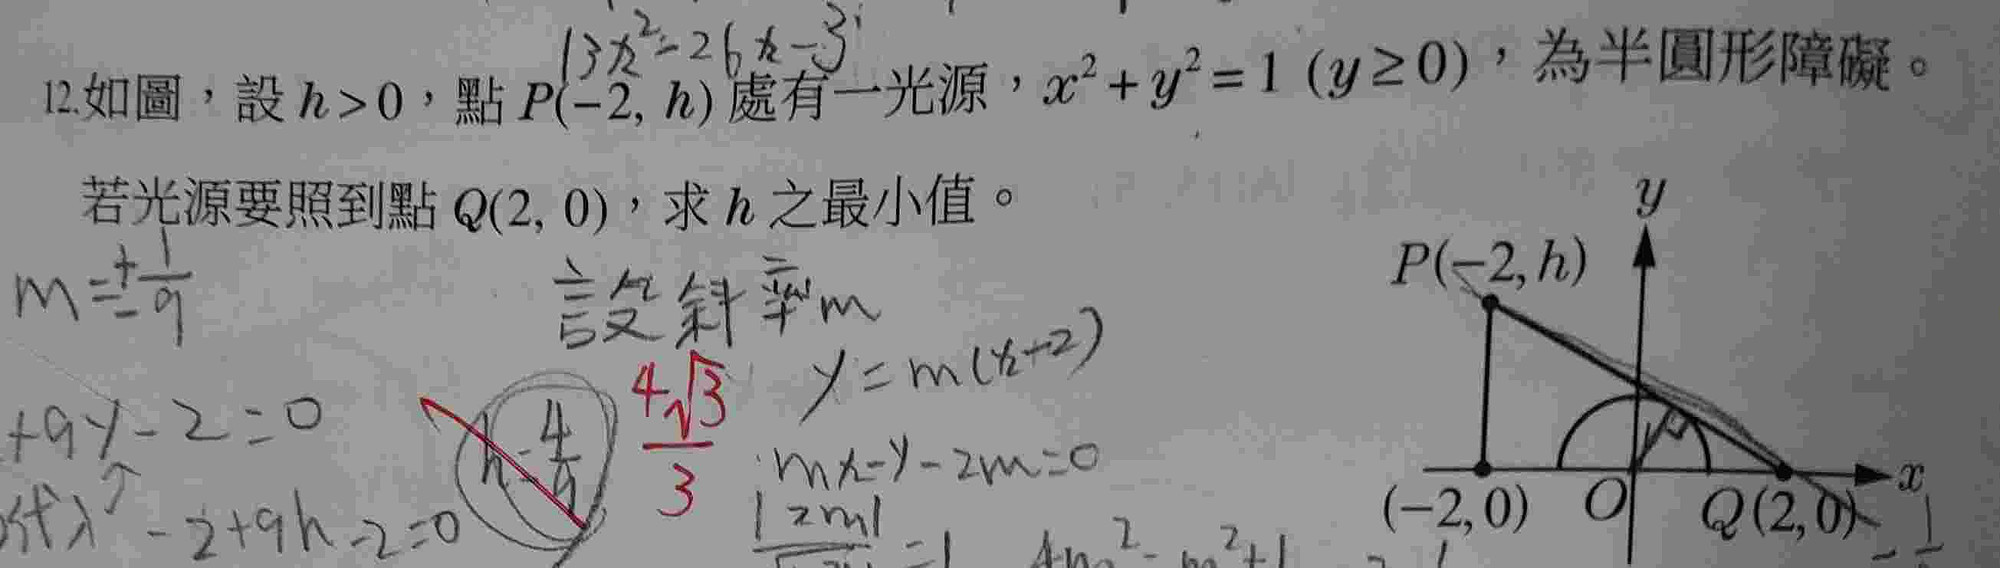 13x²-26x-3
12.如圖，設 h>0，點 P(-2, h) 處有一光源，x²+y²=1 (y≥0)，為半圓形障礙。
若光源要照到點 Q(2, 0)，求 h 之最小值。
m=±1/9
設斜率m
y=m(x-2)
+9y-2=0
h=4/9
4√3/3
mx-y-2m=0
代入 -2+9h-2=0
|2m|
=1
4m²=m²+1
y
P(-2, h)
x
(-2, 0)
O
Q(2, 0)